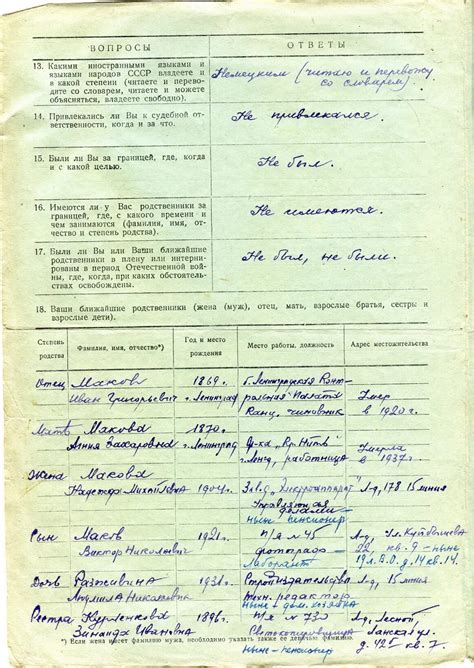 ВОПРОСЫ
ОТВЕТЫ
13. Какими иностранными языками и
языками народов СССР владеете и
в какой степени (читаете и перево-
дите со словарем, читаете и можете
объясняться, владеете свободно).
Немецким (читаю и перевожу
со словарем).
14. Привлекались ли Вы к судебной от-
ветственности, когда и за что.
Не привлекался.
15. Были ли Вы за границей, где, когда
и с какой целью.
Не был.
16. Имеются ли у Вас родственники за
границей, где, с какого времени и
чем занимаются (фамилия, имя, от-
чество и степень родства).
Не имеются.
17. Были ли Вы или Ваши ближайшие
родственники в плену или интерни-
рованы в период Отечественной вой-
ны, где, когда, при каких обстоятель-
ствах освобождены.
Не был, не были.
18. Ваши ближайшие родственники (жена (муж), отец, мать, взрослые братья, сестры и
взрослые дети).
Степень родства
Фамилия, имя, отчество*)
Год и место рождения
Место работы, должность
Адрес местожительства
Отец Маков 1869 г. г. Ленинградская Конт-
Иван Григорьевич г. Ленинград рольная Палата Умер
Канц. чиновник в 1920 г.
Мать Макова 1870 г.
Захаровна г. Ленинград ф-ка "Кр. Нить" Умерла
г. Ленгр, работница в 1937 г.
Жена Макова
Надежда Михайловна 1904 г. Завод "Электроаппарат" Л-д, 178 15 линия
ныне пенсионер
Сын Маков 1921 г. п/я № 45 Л-д, ул. Куйбышева
Виктор Николаевич фотограф 22 кв. 9 - ныне
лаборант 19 л. В.О. д. 14 кв. 14.
Дочь 1931 г. Л-д, 15 линия
Людмила Николаевна техн. редактор
ныне дом. хозяйка
Сестра Курленкова 1896 г. п/я № 730 Л-д, Лесной,
Зинаида Ивановна Светокопировщица Ланская ул.
ныне - пенсионер кв. 7.
*) Если жена имеет фамилию мужа, необходимо указать также ее девичью фамилию.